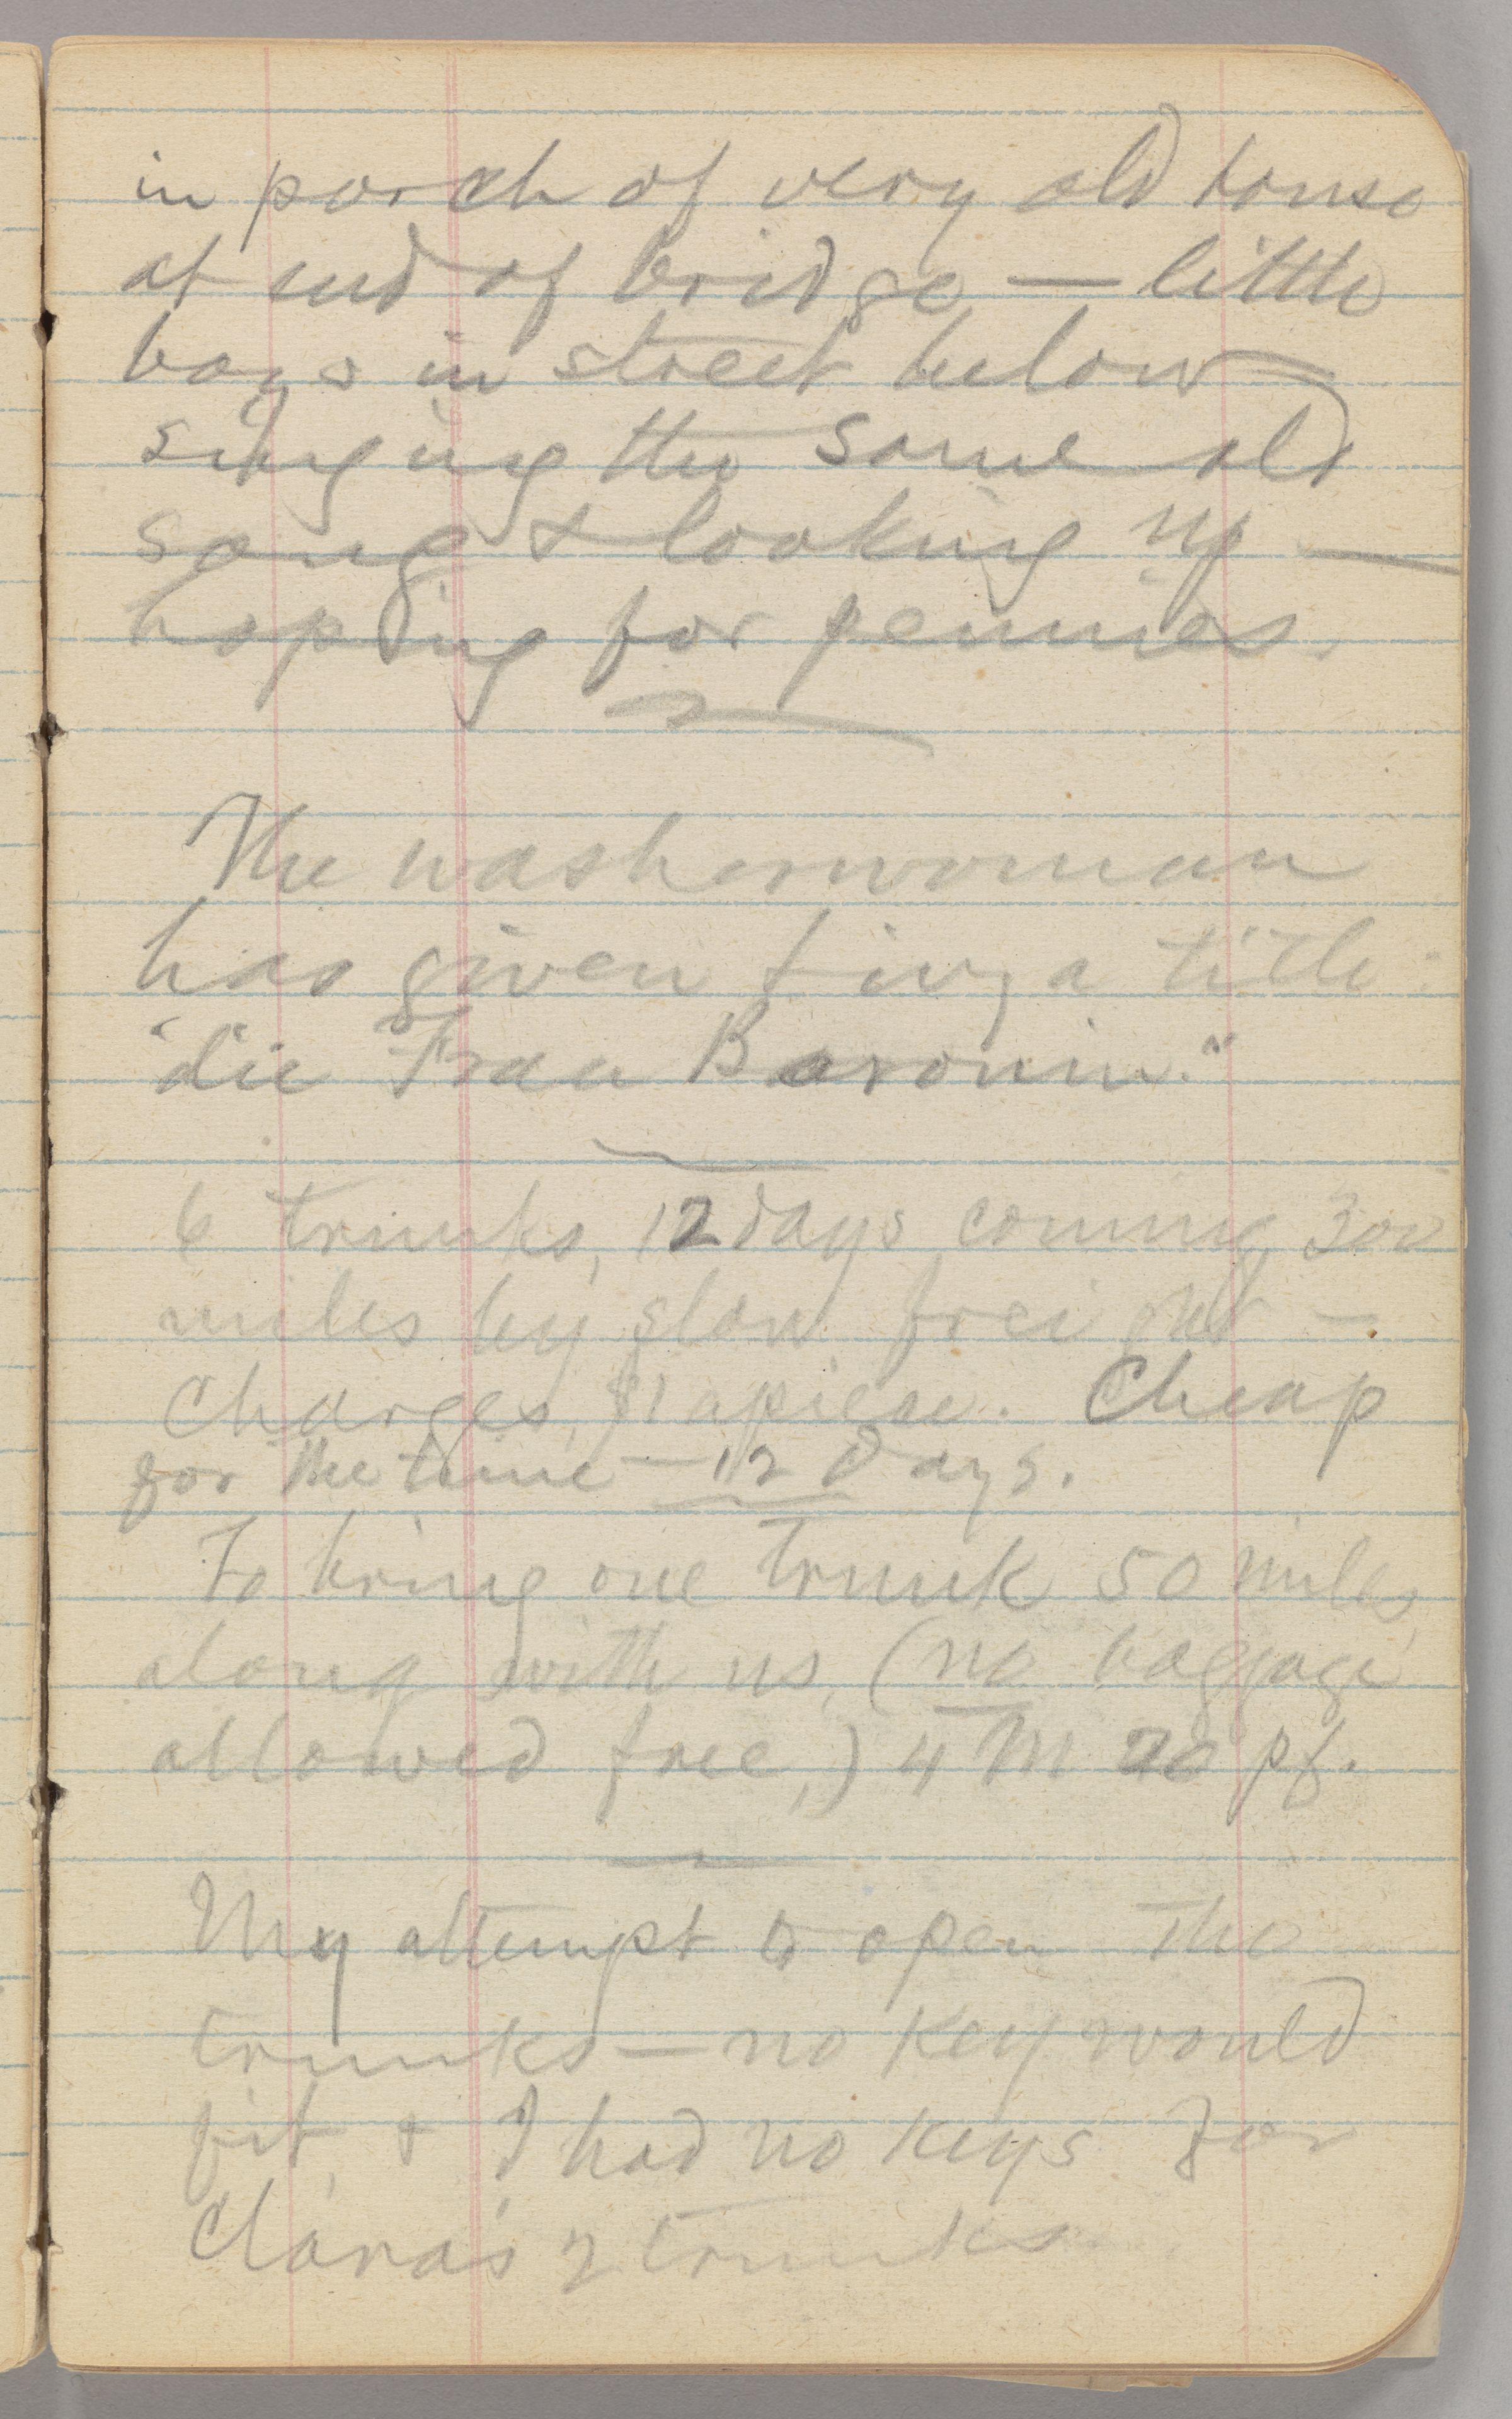 in porch of very old house
at end of bridge — little
boys in street below
singing the same old
song & looking up —
hoping for pennies.
The washerwoman
has given Livy a title:
"die Frau Baronin."
6 trunks, 12 days coming 300
miles by slow freight —
Charges, $1 apiece. Cheap
for the time — 12 days.
To bring one trunk 50 miles
along with us, (no baggage
allowed free,) 4 M 20 pf.
My attempt to open the
trunks — no key would
fit, & I had no keys for
Clara's 2 trunks